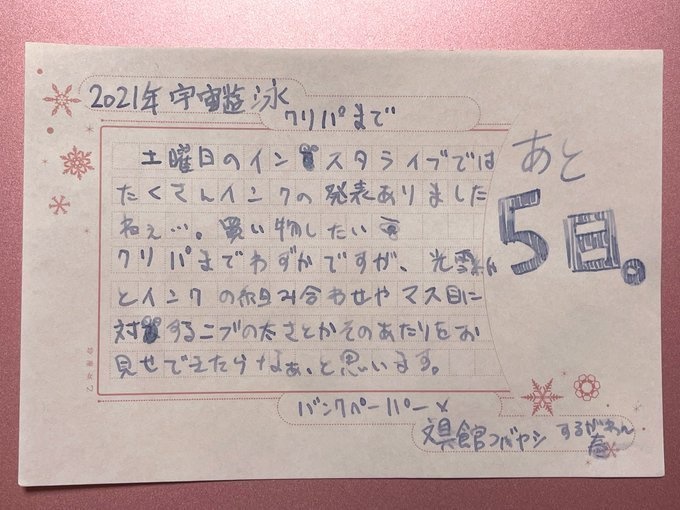 2021年 宇宙遊泳
クリパまで
土曜日のインスタライブでは
たくさんインクの発表ありました
ねぇ…。買い物したい
クリパまでわずかですが、光雪
とインクの組み合わせやマス目に
対するニブの太さとかそのあたりをお
見せできたらなぁ、と思います。
あと
5日。
バンクペーパー×
文具館コバヤシ するがわん